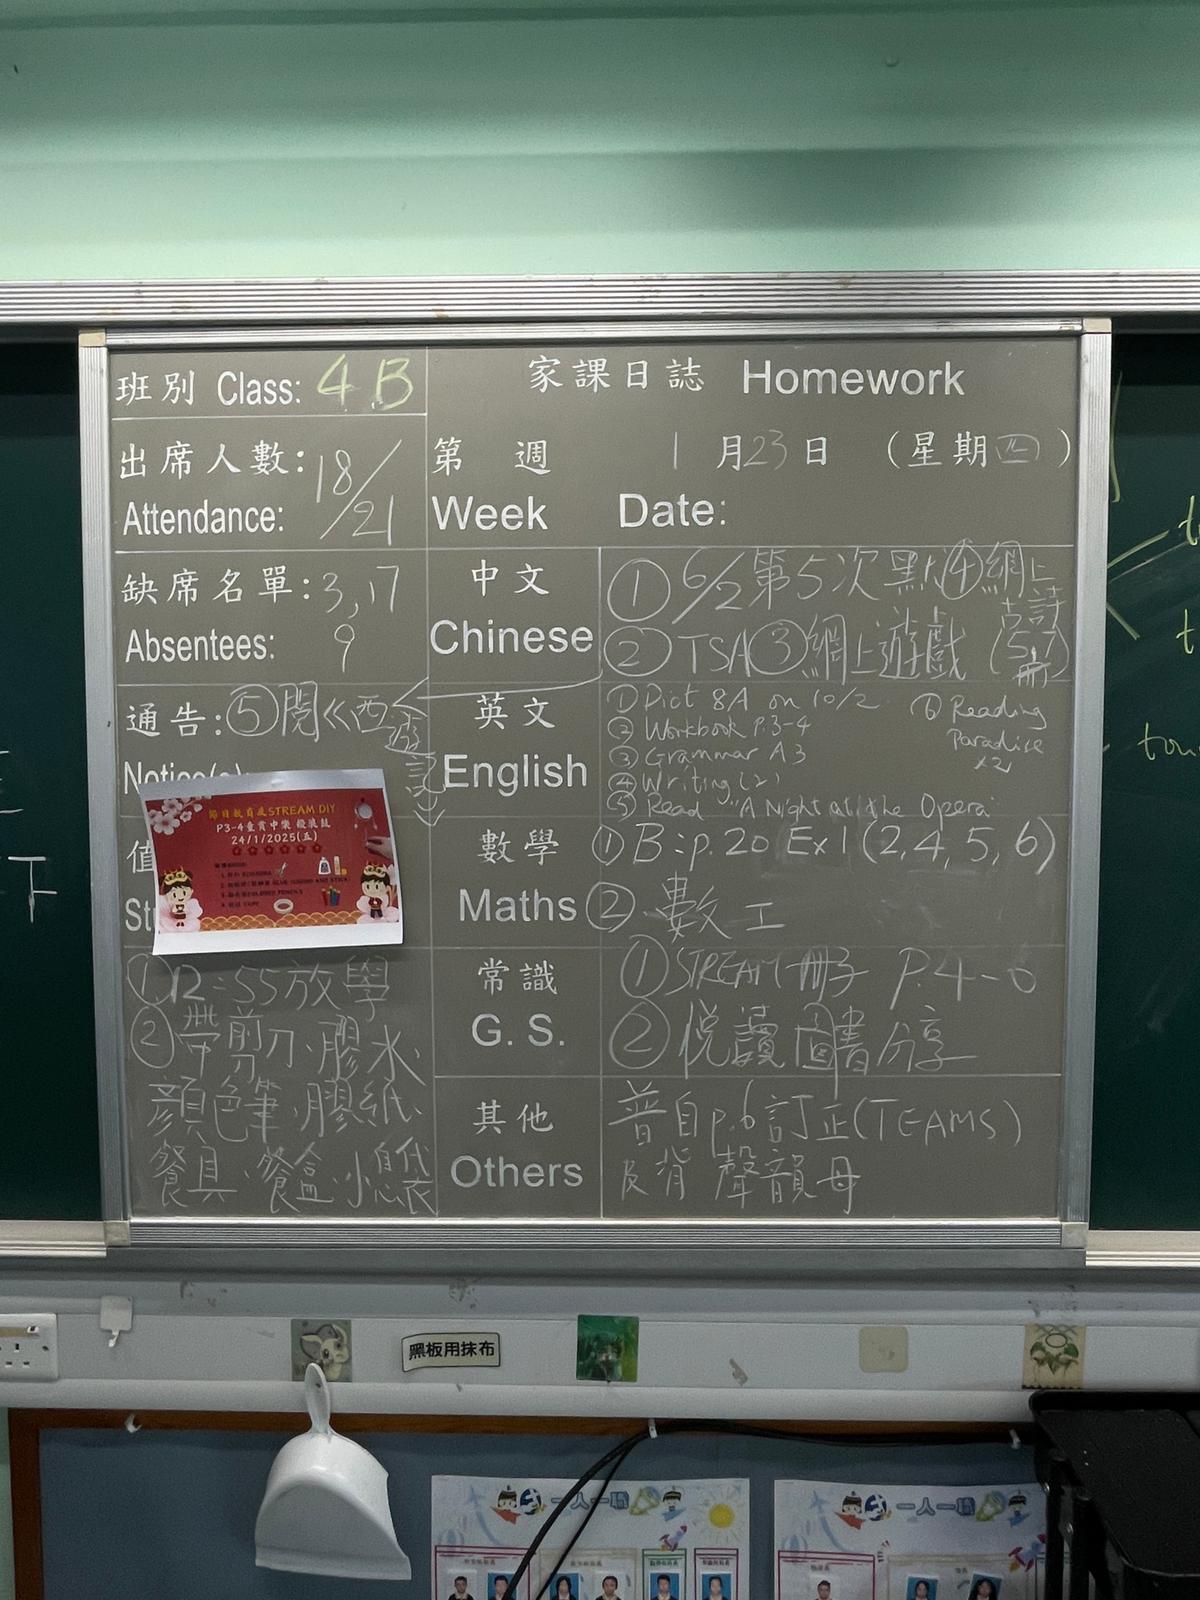 班別 Class: 4B
家課日誌 Homework
出席人數: 18/21
Attendance:
第 週 1月23日 (星期四)
Week Date:
缺席名單: 3, 17
Absentees: 9
中文
Chinese
① 6/2 第5次默 ④ 網上古詩
② TSA ③ 網上遊戲 (5,7冊)
通告: ⑤ 閱《西遊記》
Notice(s)
英文
English
① Dict 8A on 10/2
② Workbook P.3-4
③ Grammar A3
④ Writing (2)
⑤ Read "A Night at the Opera"
⑥ Reading Paradise x2
節日教育及STREAM DIY
P3-4童賞中樂
24/1/2025(五)
值
St
數學
Maths
① B: p.20 Ex1 (2, 4, 5, 6)
② 數工
① 12:55放學
② 帶剪刀、膠水、
顏色筆、膠紙、
餐具、餐盒、小息袋
常識
G. S.
① STREAM冊子 P.4-6
② 悅讀圖書分享
其他
Others
普自p.6訂正(TEAMS)
及背聲韻母
黑板用抹布
一人一職
一人一職